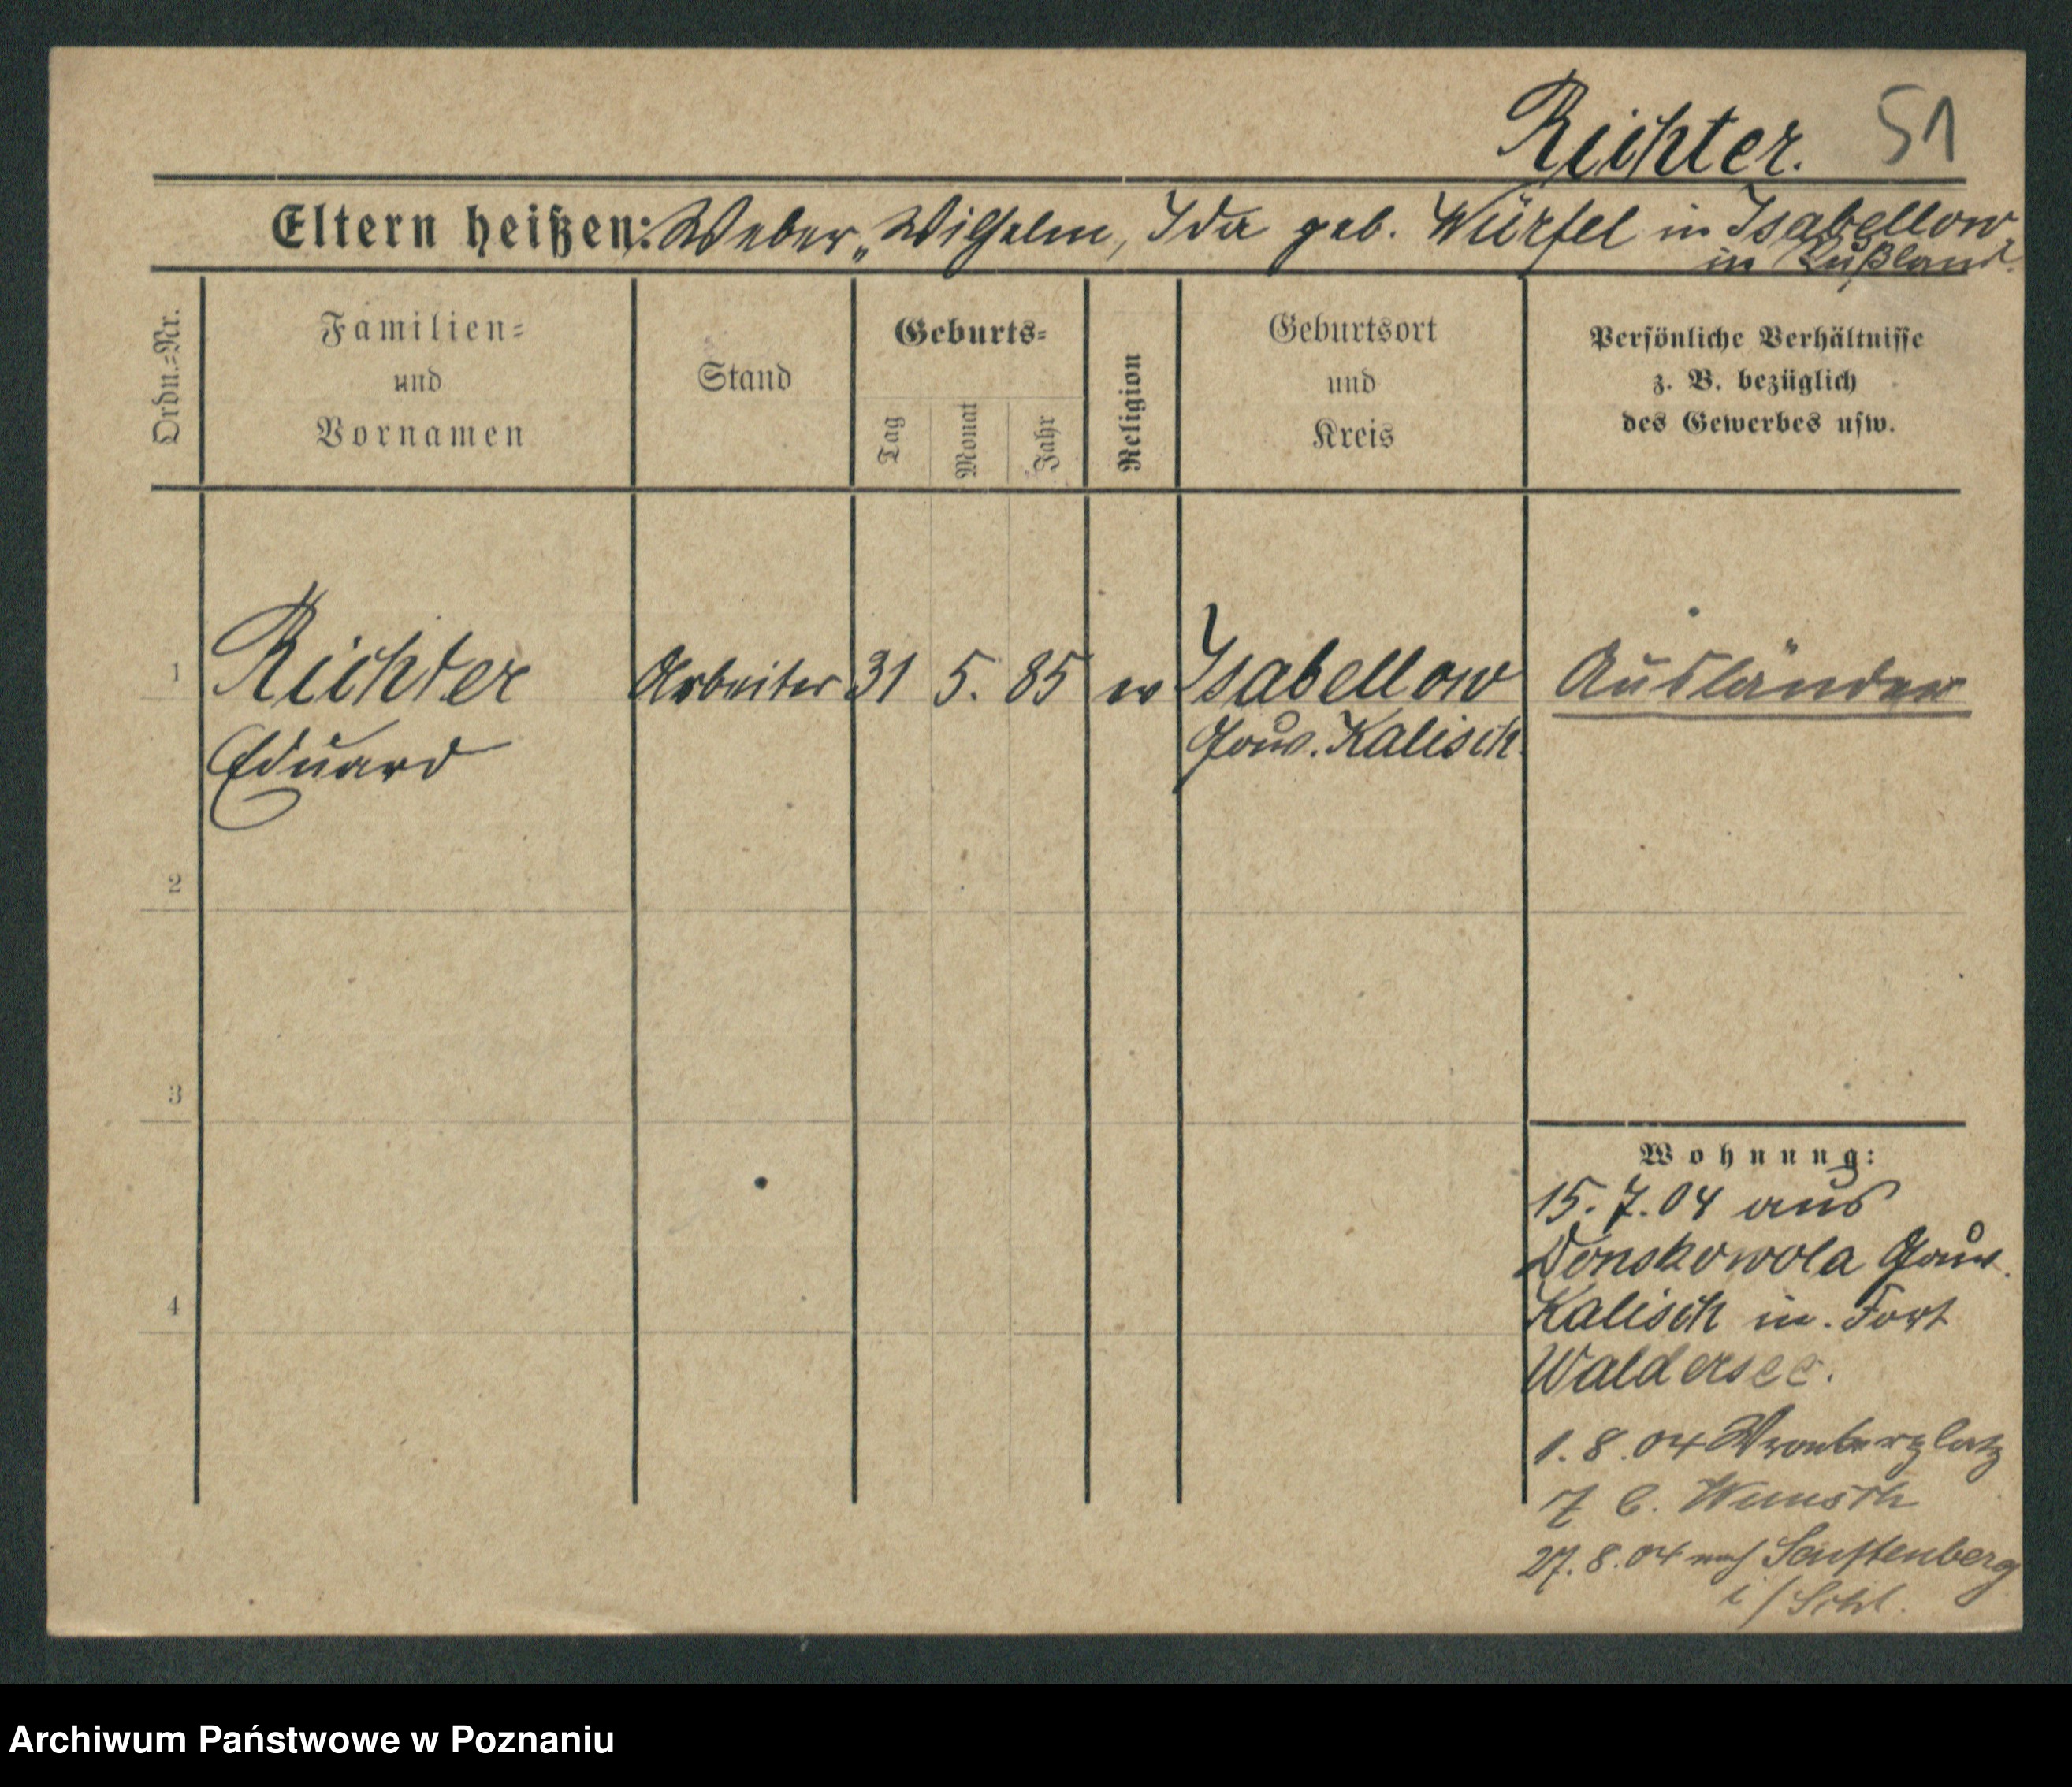 Richter. 51
Eltern heißen: Weber, Wilhelm, Ida geb. Würfel in Isabellow
in Rußland.
Ordn.=Nr.
Familien=
und
Vornamen
Stand
Geburts=
Tag
Monat
Jahr
Religion
Geburtsort
und
Kreis
Persönliche Verhältnisse
z. B. bezüglich
des Gewerbes usw.
1 Richter Arbeiter 31 5. 85 ev Isabellow Ausländer
Eduard Gouv. Kalisch
2
3
4
Wohnung:
15. 7. 04 aus
Donskowola Gouv.
Kalisch in. Fort
Waldersee.
1. 8. 04
7 b. Wunsch
27. 8. 04 nach Senftenberg
i/Schl.
Archiwum Państwowe w Poznaniu